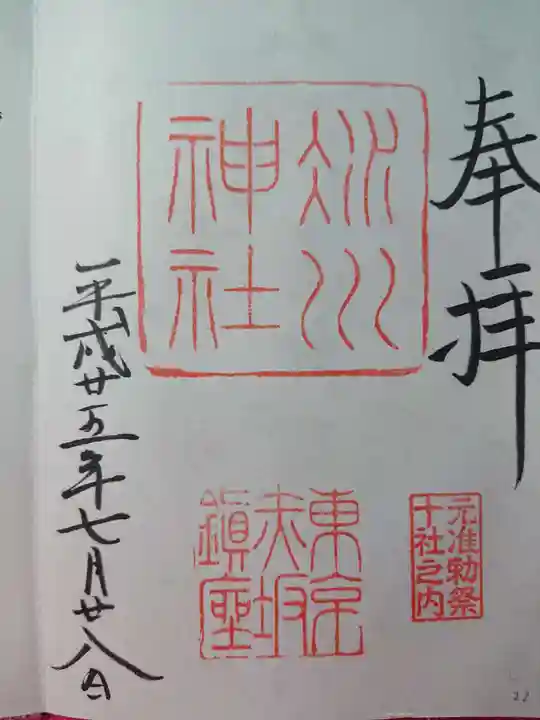 奉拝
氷川
神社
元准勅祭
十社之内
東京
赤坂
鎮座
平成廿五年七月廿八日
22